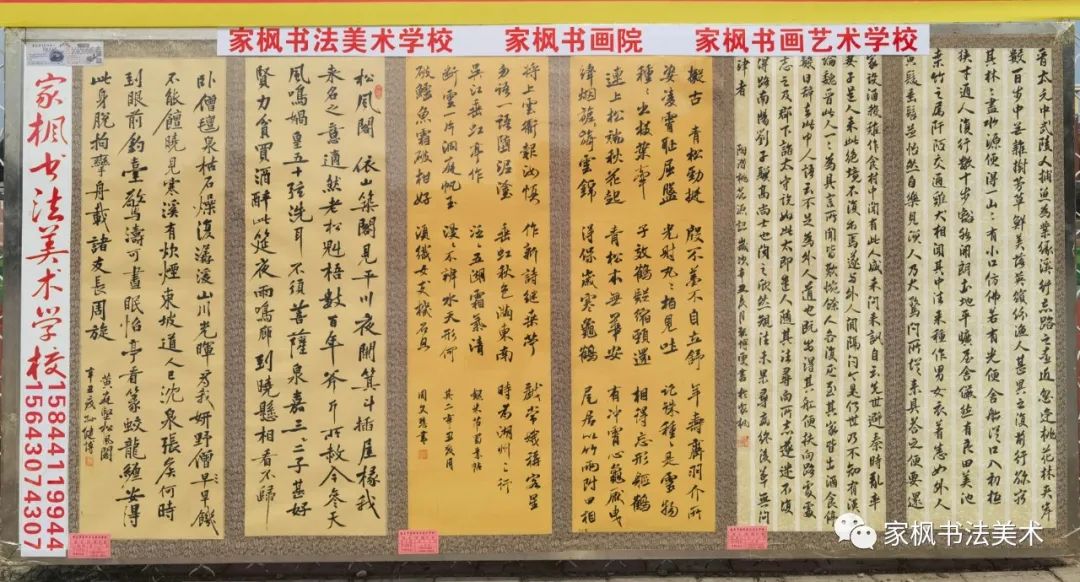 家枫书法美术学校 家枫书画院 家枫书画艺术学校
晋太元中武陵人捕魚为業缘溪行忘路之遠近忽逢桃花林夹岸
數百步中無雜樹芳草鮮美落英缤纷漁人甚異之復前行欲窮
其林林盡水源便得一山山有小口仿佛若有光便舍船從口入初極
狹才通人復行數十步豁然開朗土地平曠屋舍儼然有良田美池
桑竹之属阡陌交通雞犬相聞其中往来種作男女衣着悉如外人
黄髮垂髫並怡然自樂見漁人乃大驚問所從来具答之便要還
家設酒殺雞作食村中聞有此人咸来問訊自云先世避秦時亂率
妻子邑人来此絶境不復出焉遂与外人間隔問今是何世乃不知有漢
無論魏晉此人一一為具言所聞皆歎惋餘人各復延至其家皆出酒食停
數日辭去此中人語云不足為外人道也既出得其船便扶向路處處
志之及郡下詣太守說如此太守即遣人随其往尋向所志遂迷不復
得路南陽劉子驥高尚士也聞之欣然規往未果尋病終後遂無問
津者 陶潜桃花源記 歲次辛丑 書於家枫
擬古 青松勁挺 殷不羞不自立舒 年壽齊羽介所
姿凌霄耻屈盤 光射丸丸相見吐 託殊種是靈物
種種出枝葉牽 子教鶴龜縮頸還 相得忘形軀鶴
連上松端秋花起 青松本無華安 有冲霄心龜厭曳
緯烟旖旎雲錦 得保歲寒龜鶴 尾居以竹兩附口相
將上雲衢報汝慎 作新詩继垂
勿語一語墮泥塗 垂虹秋色滿東南 時為湖州之行
吳江垂虹亭作 泛泛五湖霜氣清
断雲一片洞庭帆玉 漫漫不辨水天形何 其二 辛丑
破鱸魚霜破柑好 須織女支機石 周文 書
松風閣 依山築閣見平川夜闌箕斗插屋椽我
来名之意適然老松魁梧數百年斧斤所赦今参天
風鳴媧皇五十弦洗耳不須菩薩泉嘉二三子甚好
賢力貧買酒醉此筵夜雨鳴廊到曉懸相看不歸
卧僧氈泉枯石燥復潺湲山川光暉為我妍野僧早早饑
不能饘曉見寒溪有炊煙東坡道人已沈泉張侯何時
到眼前釣臺驚濤可晝眠怡亭看篆蛟龍纏安得
此身脱拘攣舟載諸友長周旋
黄庭堅松風閣
辛丑 孙健博
家枫书法美术学校
15844119944
15643074307
家枫书法美术